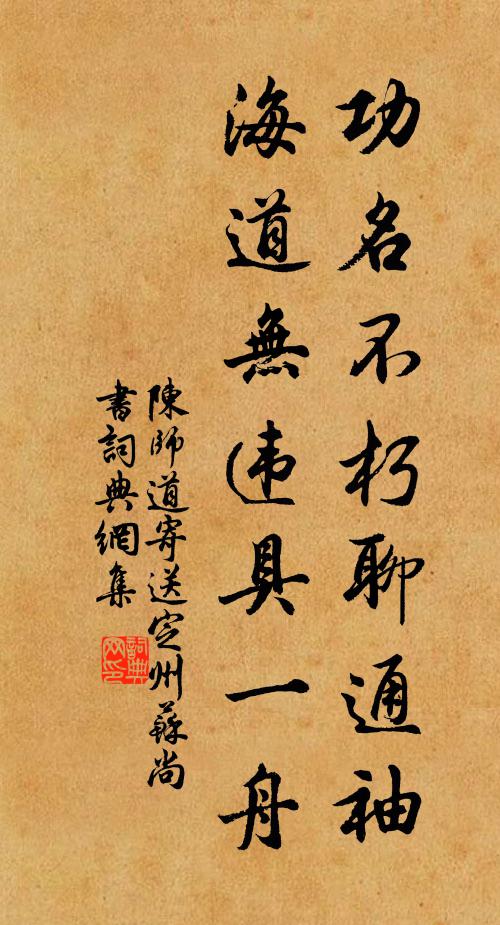 功名不朽聊通袖
海道無违具一舟
陳師道寄送定州蘇尚
書詞典網集
詞典
网印